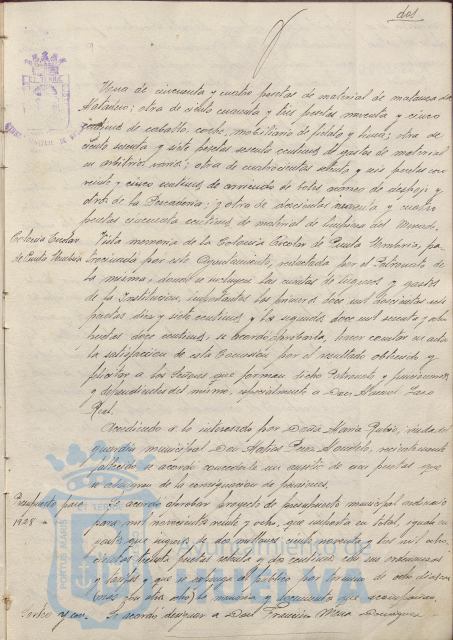 dos
Una de cincuenta y cuatro pesetas de material de matanza de
Matadero; otra de ciento cuarenta y tres pesetas noventa y cinco
céntimos de caballo, coche, mobiliario de fielato y luces; otra de
ciento sesenta y siete pesetas sesenta céntimos de gastos de material
en arbitrios varios; otra de cuatrocientas setenta y seis pesetas con
veinte y cinco céntimos de arriendo de de despojos y
otros de la Pescadería; y otra de doscientas noventa y cuatro
pesetas cincuenta céntimos de material de limpieza del Mercado.
Colonia Escolar
de Punta Umbría
Vista memoria de la Colonia Escolar de Punta Umbría, pa-
trocinada por este Ayuntamiento, redactada por el Patronato de
la misma, donde se incluyen las cuentas de ingresos y gastos
de la Institución, importantes los primeros doce mil doscientas seis
pesetas diez y siete céntimos y los segundos doce mil sesenta y ocho
pesetas doce céntimos, se acordó aprobarla, hacer constar en acta
la satisfacción de esta Comisión por el resultado obtenido y
felicitar a los Señores que forman dicho Patronato y
y dependientes del mismo, especialmente a Don Manuel
Real.
Accediendo a lo interesado por Doña María Rubio, viuda del
guardia municipal Don Matías Pérez, recientemente
fallecido se acordó concederle un auxilio de cien pesetas que
de la consignación de
Presupuesto para
1928
Se acordó aprobar proyecto de presupuesto municipal ordinario
para mil novecientos veinte y ocho, que importa en total, igual en
gastos que ingresos de dos millones ciento noventa y los mil ocho-
cientas treinta pesetas setenta y dos céntimos con sus ordenanzas
y tarifas y que se exponga al público por término de ocho días
(más con otros ocho) la memoria y documentos que acompañan.
Se acordó designar a Don Francisco Mora
Ayuntamiento de
Huelva
PORTUS MARIS